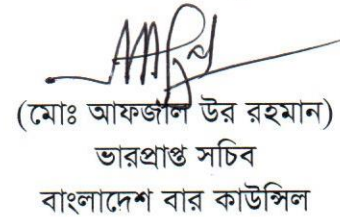 (মোঃ আফজাল উর রহমান)
ভারপ্রাপ্ত সচিব
বাংলাদেশ বার কাউন্সিল